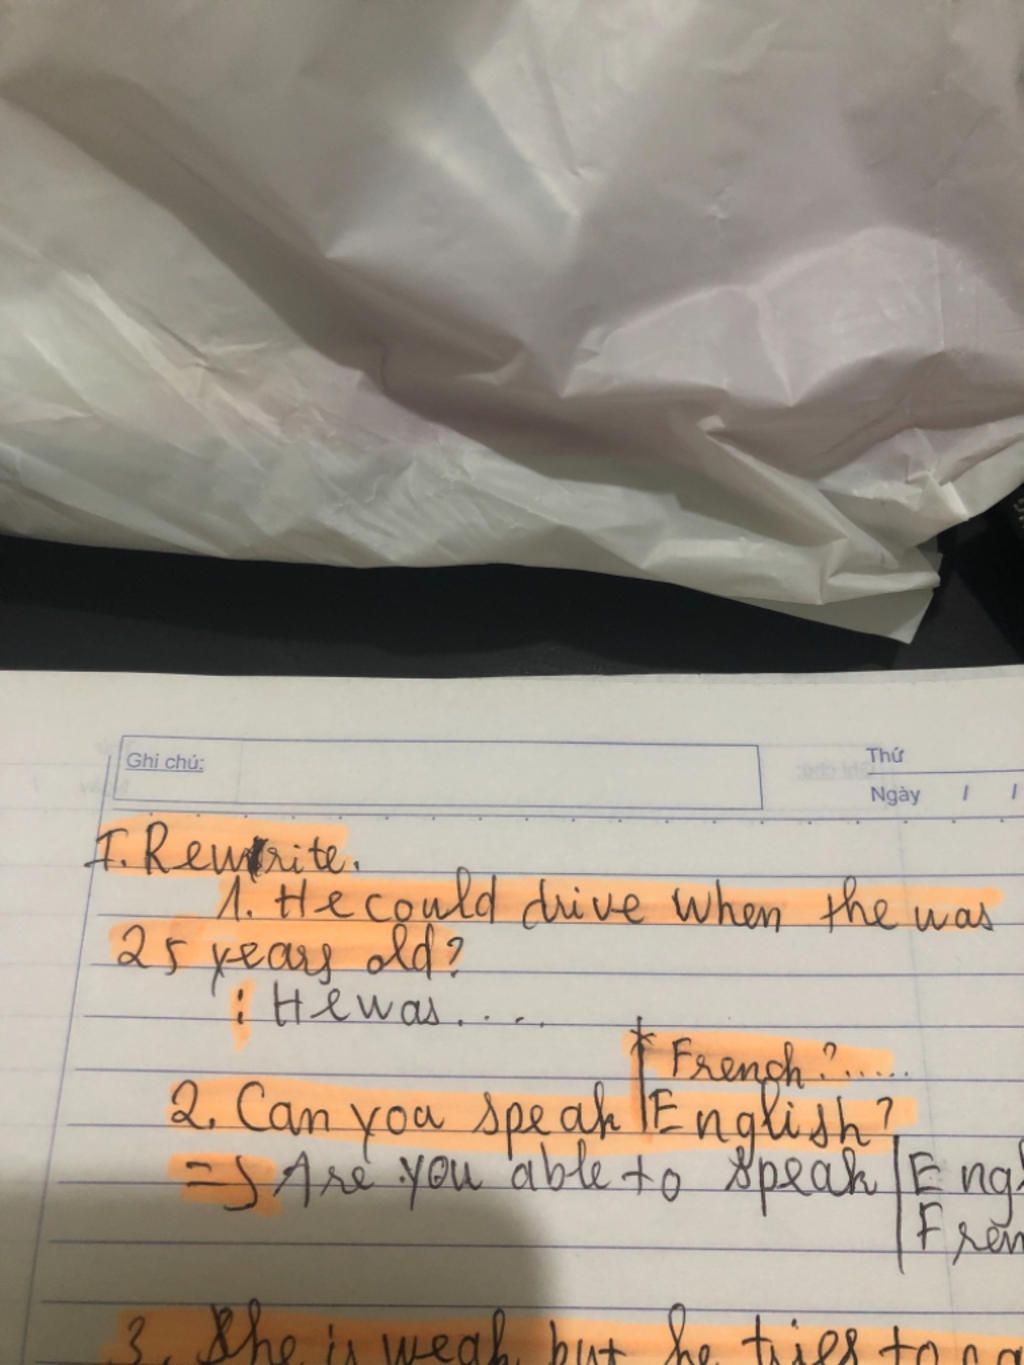 Ghi chú:
Thứ
Ngày / /
I. Rewrite.
1. He could drive when the was
25 years old?
: He was....
* French?.....
2. Can you speak English?
=> Are you able to speak Engl
Fren
3. She is weak but he tries to